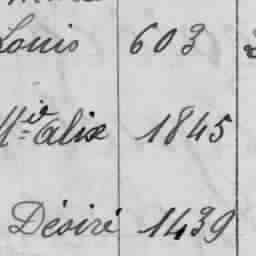 Louis 603
Mie Alix 1845
Désiré 1439